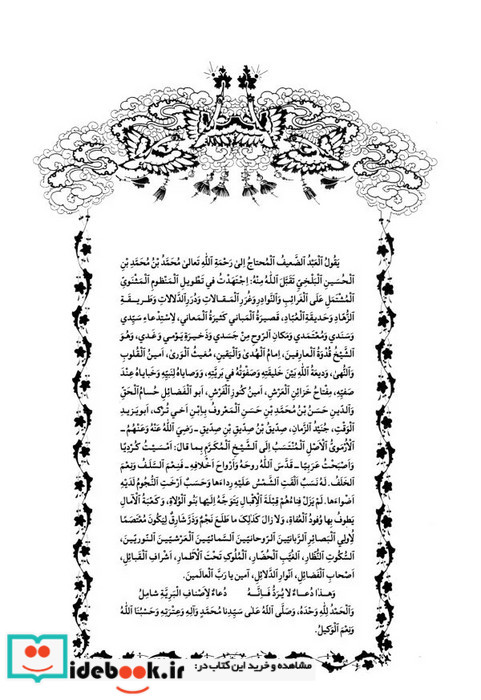 يَقُولُ الْعَبْدُ الضَّعِيفُ الْمُحتاجُ اِلىٰ رَحْمَةِ اللّٰهِ تَعالىٰ مُحَمَّدُ بْنُ مُحَمَّدِ بْنِ
الْحُسَيْنِ الْبَلْخِيُّ تَقَبَّلَ اللّٰهُ مِنْهُ: اِجْتَهَدْتُ في تَطْوِيلِ الْمَنْظُومِ الْمَثْنَوِيِّ
الْمُشْتَمِلِ عَلَى الْغَرائِبِ وَالنَّوادِرِ وَغُرَرِ الْمَقالاتِ وَدُرَرِ الدَّلالاتِ وَطَريقَةِ
الزُّهّادِ وَحَديقَةِ الْعُبّادِ، قَصيرَةُ الْمَباني كَثيرَةُ الْمَعاني، لِاسْتِدْعاءِ سَيِّدي
وَسَنَدي وَمُعْتَمَدي وَمَكانِ الرّوحِ مِنْ جَسَدي وَذَخيرَةِ يَوْمي وَغَدي، وَهُوَ
الشَّيْخُ قُدْوَةُ الْعارِفينَ، اِمامُ الْهُدىٰ وَالْيَقينِ، مُغيثُ الْوَرىٰ، اَمينُ الْقُلُوبِ
وَالنُّهىٰ، وَديعَةُ اللّٰهِ بَيْنَ خَليقَتِهِ وَصَفْوَتُهُ في بَرِيَّتِهِ، وَوَصاياهُ لِنَبِيِّهِ وَخَباياهُ عِنْدَ
صَفِيِّهِ، مِفْتاحُ خَزائِنِ الْعَرْشِ، اَمينُ كُنُوزِ الْفَرْشِ، اَبو الْفَضائِلِ حُسامُ الْحَقِّ
وَالدّينِ حَسَنُ بْنُ مُحَمَّدِ بْنِ حَسَنِ الْمَعْرُوفُ بِابْنِ اَخي تُرْك، اَبويَزيدِ
الْوَقْتِ، جُنَيْدُ الزَّمانِ، صِدّيقُ بْنُ صِدّيقِ بْنِ صِدّيقِ ـ رَضِيَ اللّٰهُ عَنْهُ وَعَنْهُمْ ـ
الْاُرْمَوِيُّ الْاَصْلِ الْمُنْتَسَبُ اِلَى الشَّيْخِ الْمُكَرَّمِ بِما قالَ: اَمْسَيْتُ كُرْدِيًّا
وَاَصْبَحْتُ عَرَبِيًّا ـ قَدَّسَ اللّٰهُ روحَهُ وَاَرْواحَ اَخْلافِهِ ـ فَنِعْمَ السَّلَفُ وَنِعْمَ
الْخَلَفُ. لَهُ نَسَبٌ اَلْقَتِ الشَّمْسُ عَلَيْهِ رِداءَها وَحَسَبٌ اَرْخَتِ النُّجُومُ لَدَيْهِ
اَضْواءَها. لَمْ يَزَلْ فِناءُهُمْ قِبْلَةَ الْاِقْبالِ يَتَوَجَّهُ اِلَيْها بَنُو الْوُلاةِ، وَكَعْبَةَ الْآمالِ
يَطُوفُ بِها وُفُودُ الْعُفاةِ، وَلا زالَ كَذٰلِكَ ما طَلَعَ نَجْمٌ وَذَرَّ شارِقٌ لِيَكُونَ مُعْتَصَمًا
لِاُولِي الْبَصائِرِ الرَّبّانِيّينَ الرّوحانِيّينَ السَّمائِيّينَ الْعَرْشِيّينَ النّورِيّينَ،
السُّكُوتِ النُّظّارِ، الْغُيَّبِ الْحُضّارِ، الْمُلُوكِ تَحْتَ الْاَطْمارِ، اَشْرافِ الْقَبائِلِ،
اَصْحابِ الْفَضائِلِ، اَنْوارِ الدَّلائِلِ، آمين يا رَبَّ الْعالَمينَ.
وَهٰذا دُعاءٌ لا يُرَدُّ فَاِنَّهُ دُعاءٌ لِاَصْنافِ الْبَرِيَّةِ شامِلُ
وَالْحَمْدُ لِلّٰهِ وَحْدَهُ، وَصَلَّى اللّٰهُ عَلىٰ سَيِّدِنا مُحَمَّدٍ وَآلِهِ وَعِتْرَتِهِ وَحَسْبُنَا اللّٰهُ
وَنِعْمَ الْوَكيلُ.
idebook.ir
مشاهده و خرید این کتاب در: